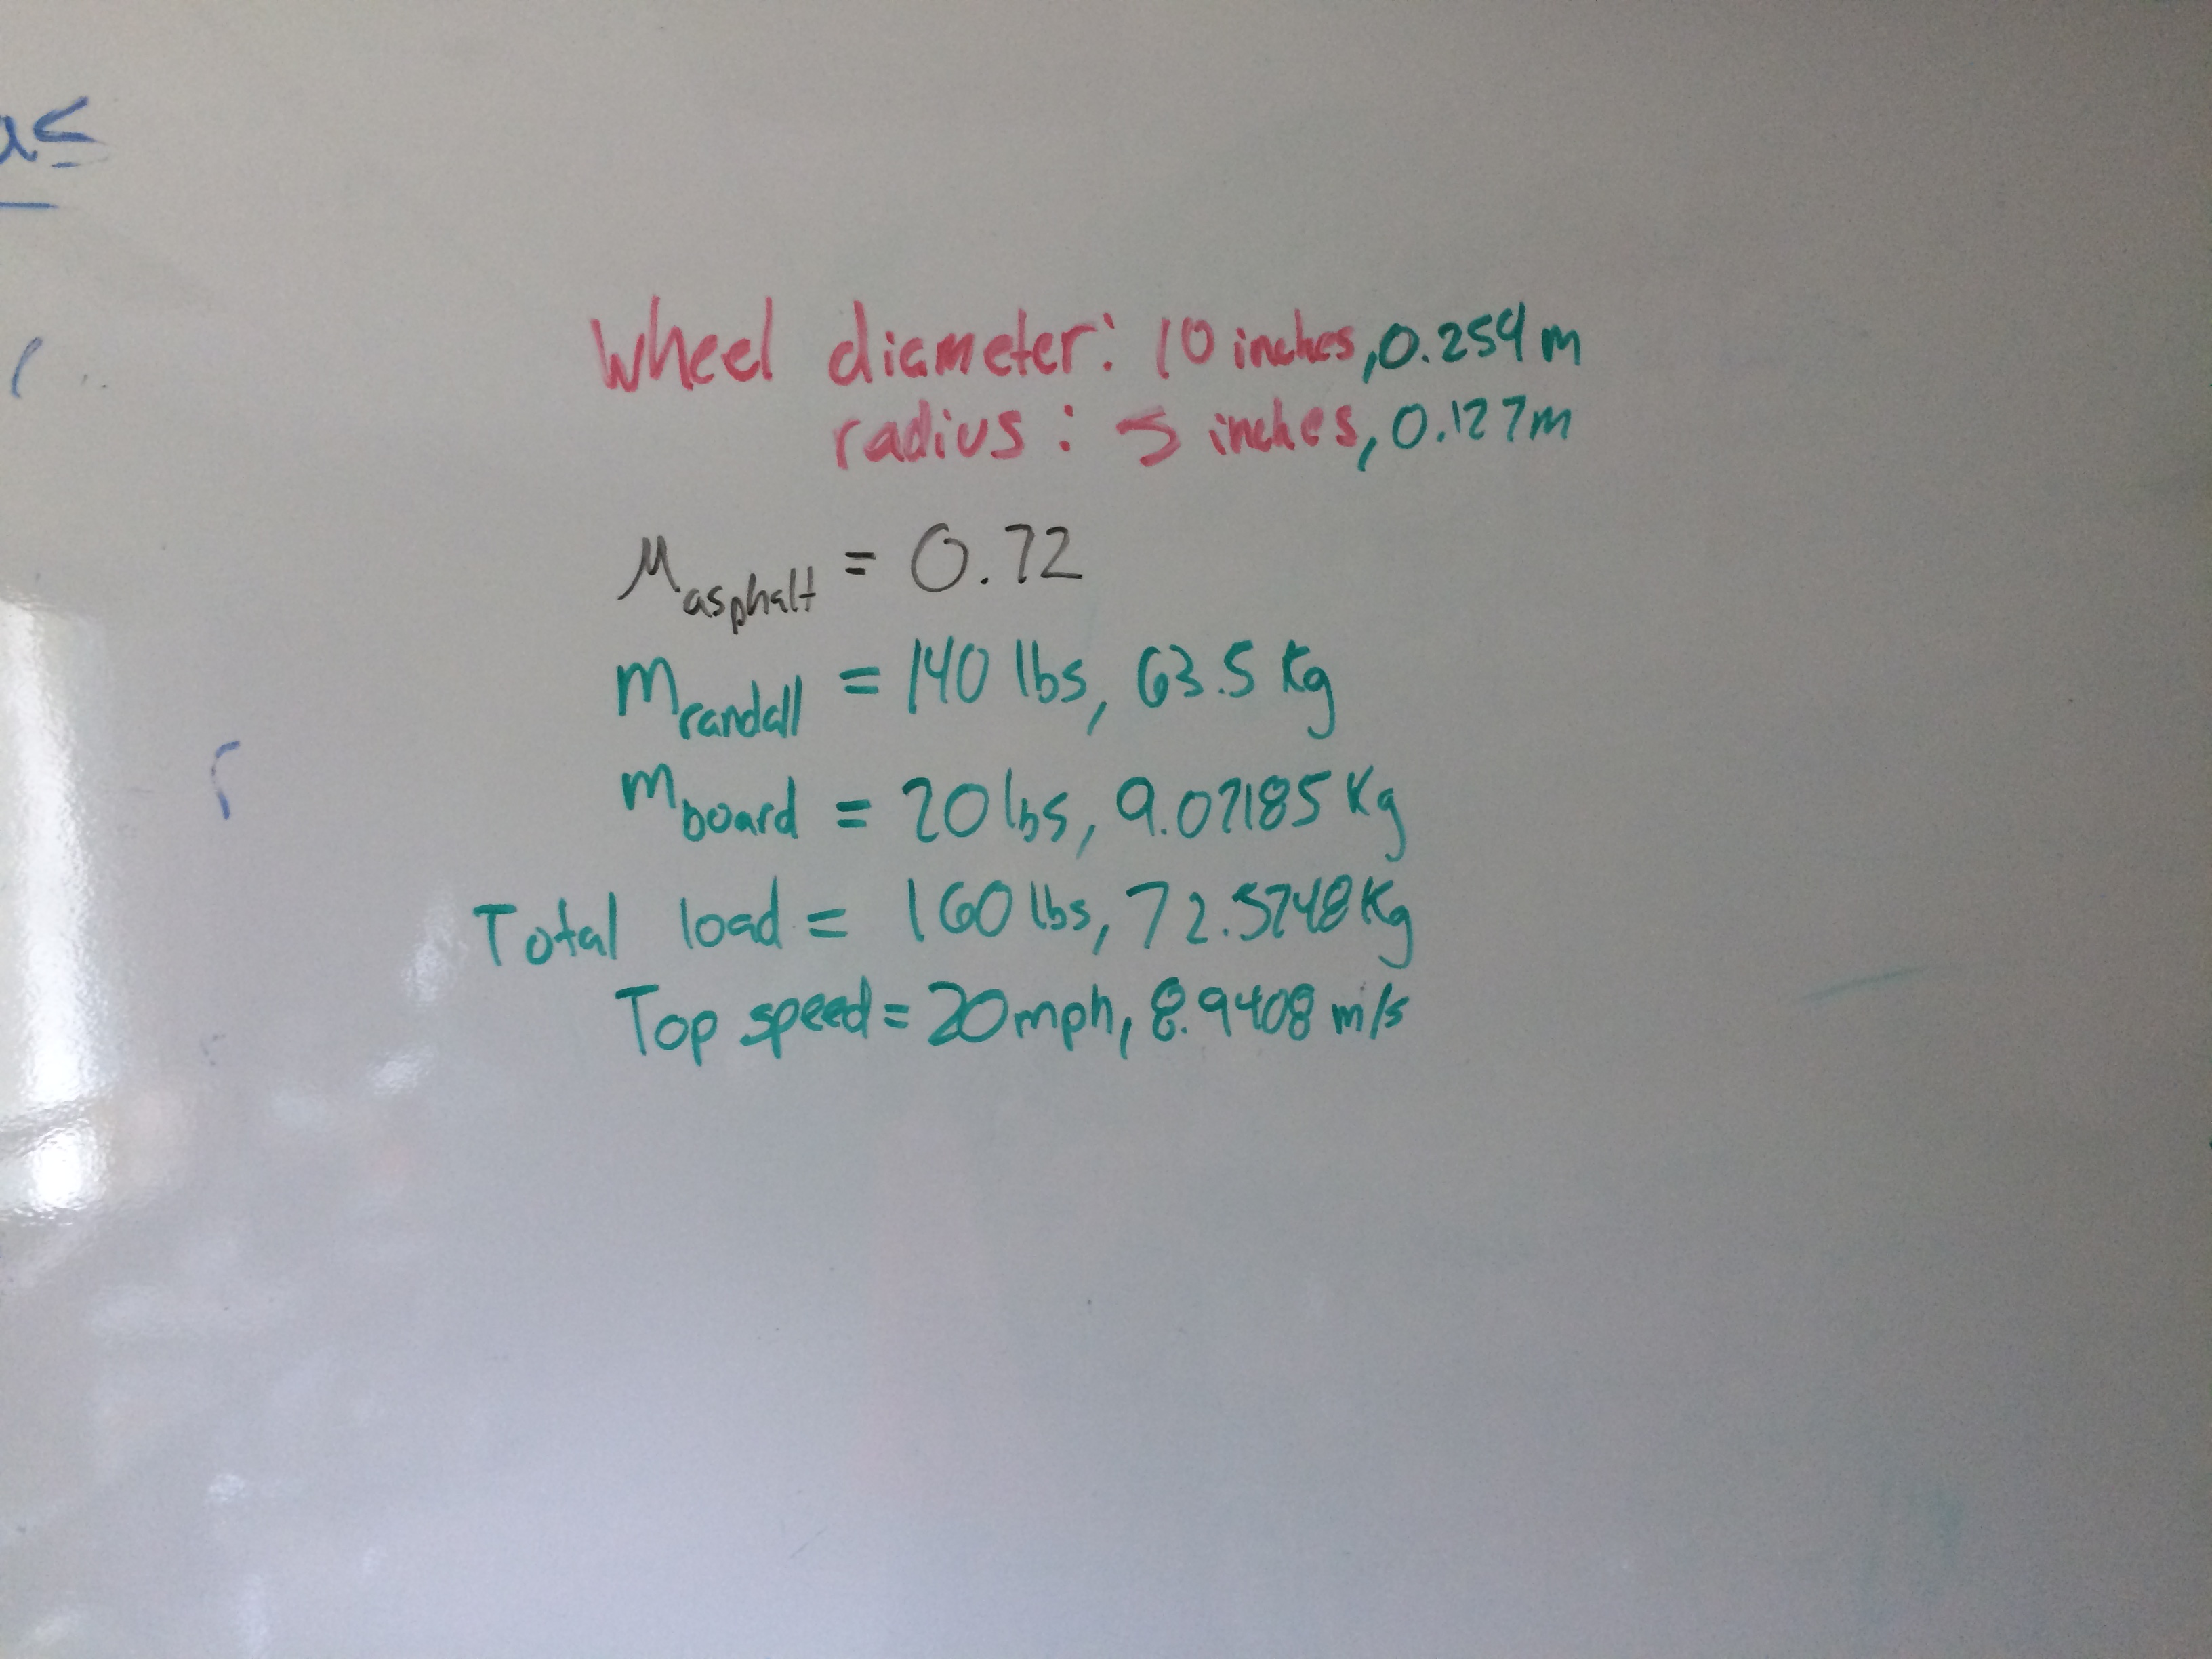 Wheel diameter: 10 inches, 0.254 m
radius: 5 inches, 0.127m
μasphalt = 0.72
mrandall = 140 lbs, 63.5 Kg
mboard = 20 lbs, 9.07185 Kg
Total load = 160 lbs, 72.5748 Kg
Top speed = 20mph, 8.9408 m/s